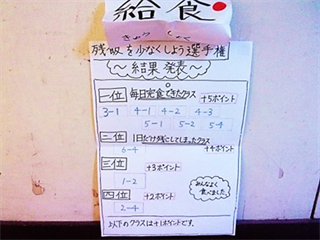 給食
きゅう しょく
残飯を少なくしよう選手権
～結果発表～
一位 毎日完食できたクラス +5ポイント
3-1 4-1 4-2 4-3
5-1 5-2 5-4
二位 1日だけ残してしまったクラス
6-4 +4ポイント
三位 +3ポイント
1-2
みんなよく食べました
四位 +2ポイント
2-4
以下のクラスは+1ポイントです。